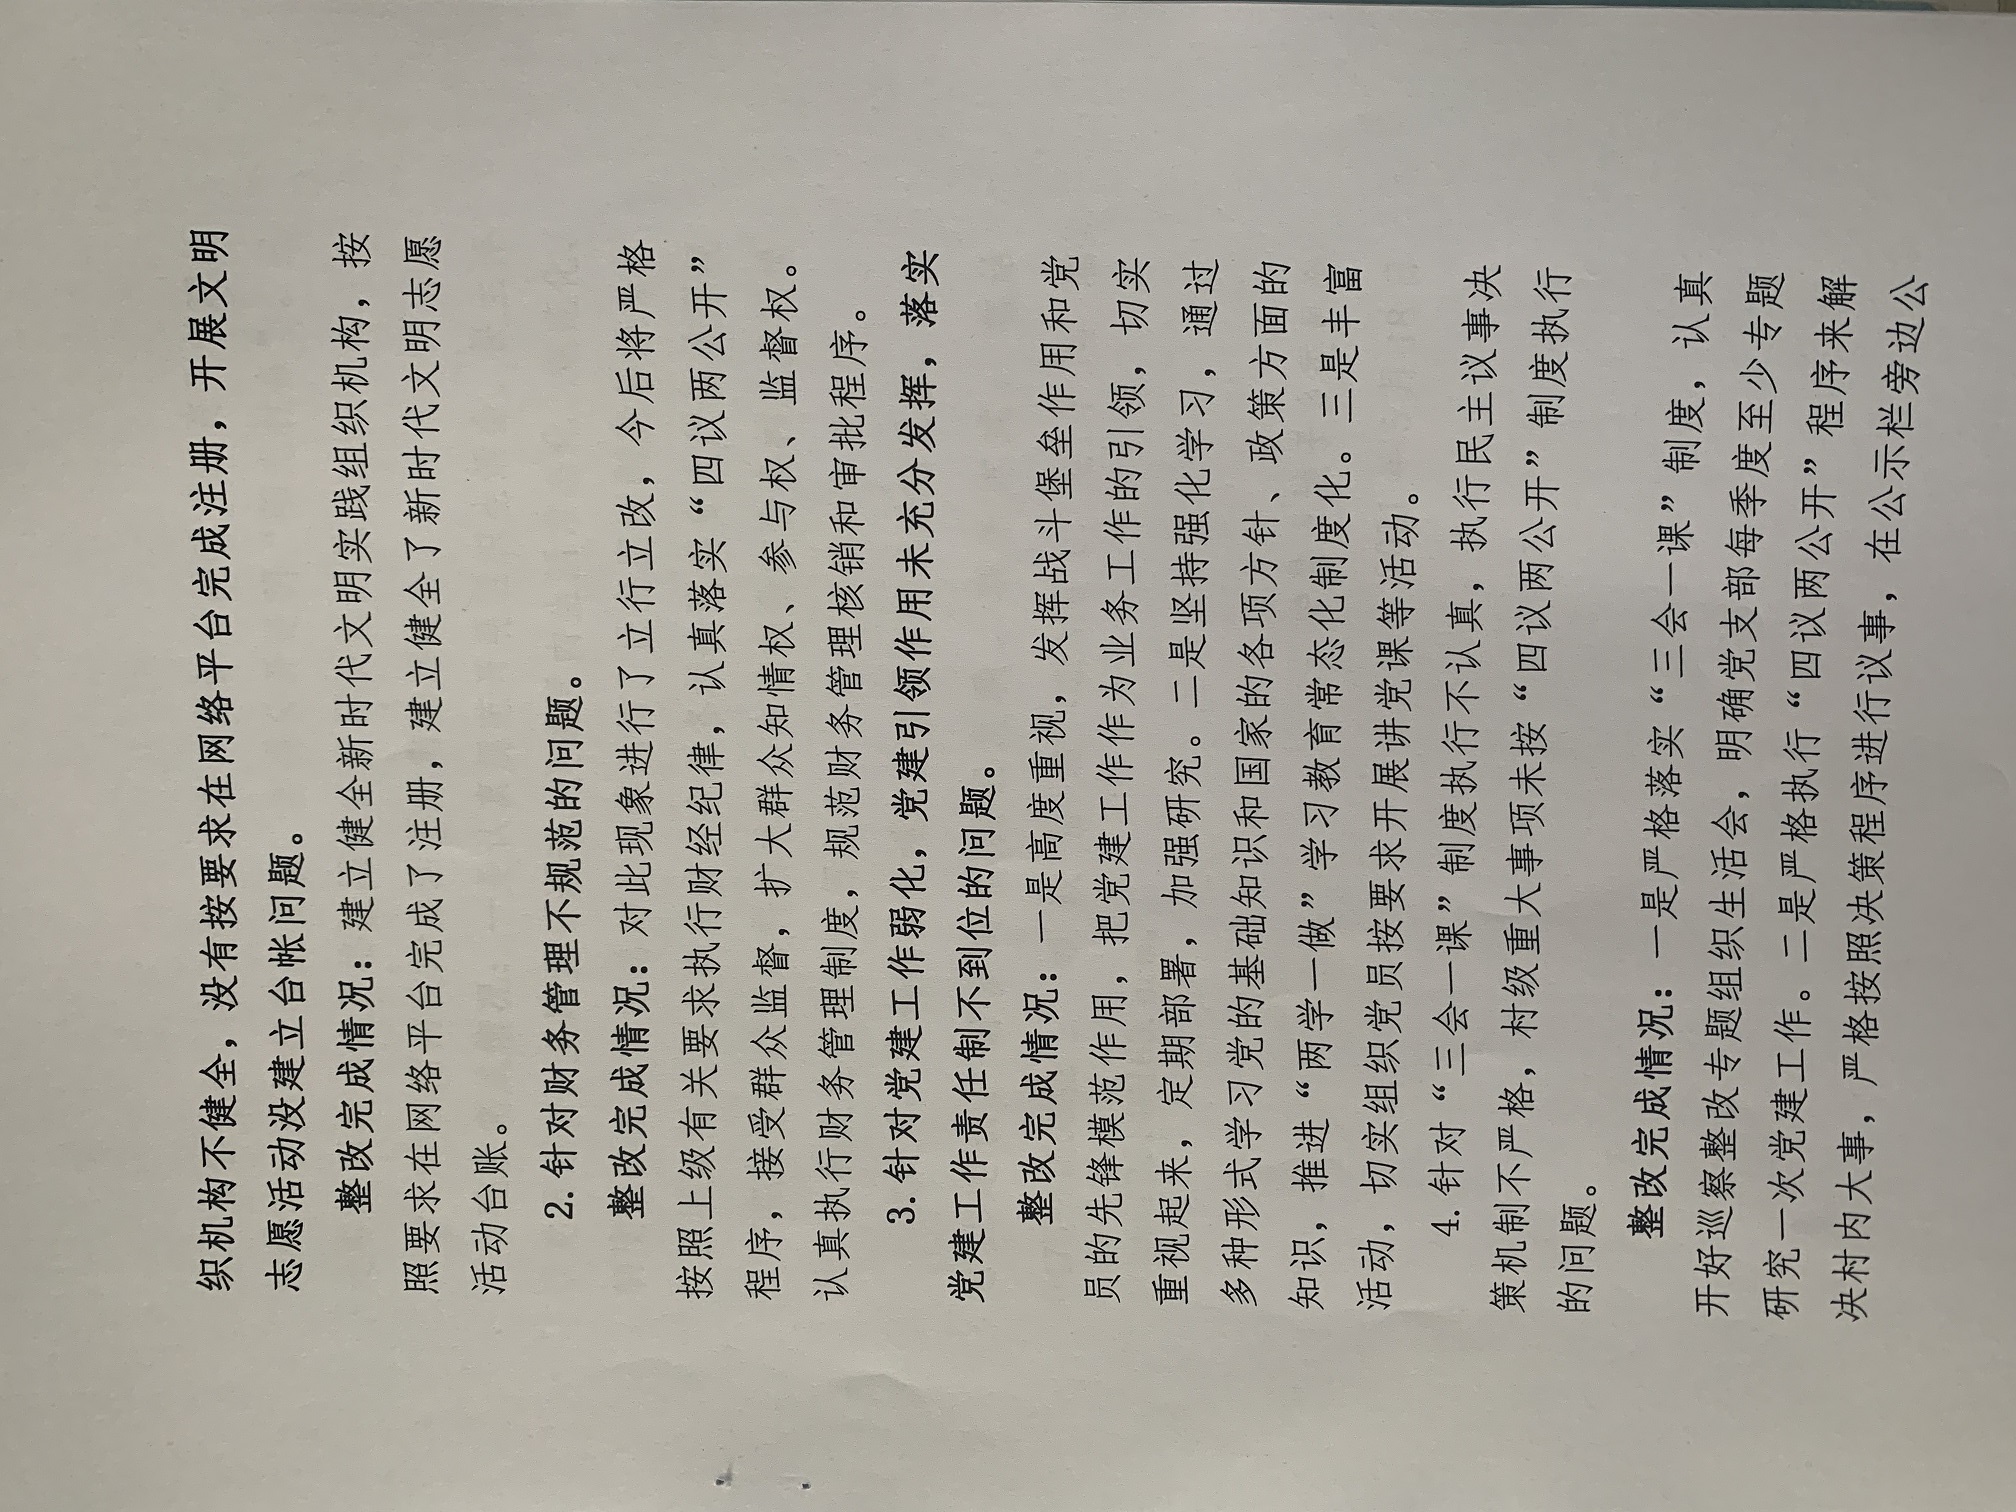 织机构不健全，没有按要求在网络平台完成注册，开展文明
志愿活动没建立台帐问题。
整改完成情况：建立健全新时代文明实践组织机构，按
照要求在网络平台完成了注册，建立健全了新时代文明志愿
活动台账。
2.针对财务管理不规范的问题。
整改完成情况：对此现象进行了立行立改，今后将严格
按照上级有关要求执行财经纪律，认真落实“四议两公开”
程序，接受群众监督，扩大群众知情权、参与权、监督权。
认真执行财务管理制度，规范财务管理核销和审批程序。
3.针对党建工作弱化，党建引领作用未充分发挥，落实
党建工作责任制不到位的问题。
整改完成情况：一是高度重视，发挥战斗堡垒作用和党
员的先锋模范作用，把党建工作作为业务工作的引领，切实
重视起来，定期部署，加强研究。二是坚持强化学习，通过
多种形式学习党的基础知识和国家的各项方针、政策方面的
知识，推进“两学一做”学习教育常态化制度化。三是丰富
活动，切实组织党员按要求开展讲党课等活动。
4.针对“三会一课”制度执行不认真，执行民主议事决
策机制不严格，村级重大事项未按“四议两公开”制度执行
的问题。
整改完成情况：一是严格落实“三会一课”制度，认真
开好巡察整改专题组织生活会，明确党支部每季度至少专题
研究一次党建工作。二是严格执行“四议两公开”程序来解
决村内大事，严格按照决策程序进行议事，在公示栏旁边公